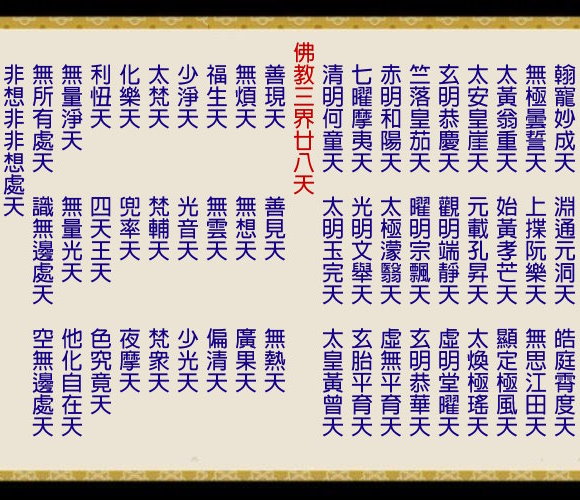 翰寵妙成天 淵通元洞天 皓庭霄度天
無極曇誓天 上揲阮樂天 無思江田天
太黃翁重天 始黃孝芒天 顯定極風天
太安皇崖天 元載孔昇天 太煥極瑤天
玄明恭慶天 觀明端靜天 虛明堂曜天
竺落皇茄天 曜明宗飄天 玄明恭華天
赤明和陽天 太極濛翳天 虛無平育天
七曜摩夷天 光明文舉天 玄胎平育天
清明何童天 太明玉完天 太皇黃曾天
佛教三界廿八天
善現天 善見天 無熱天
無煩天 無想天 廣果天
福生天 無雲天 偏清天
少淨天 光音天 少光天
太梵天 梵輔天 梵衆天
化樂天 兜率天 夜摩天
利忸天 四天王天 色究竟天
無量淨天 無量光天 他化自在天
無所有處天 識無邊處天 空無邊處天
非想非非想處天